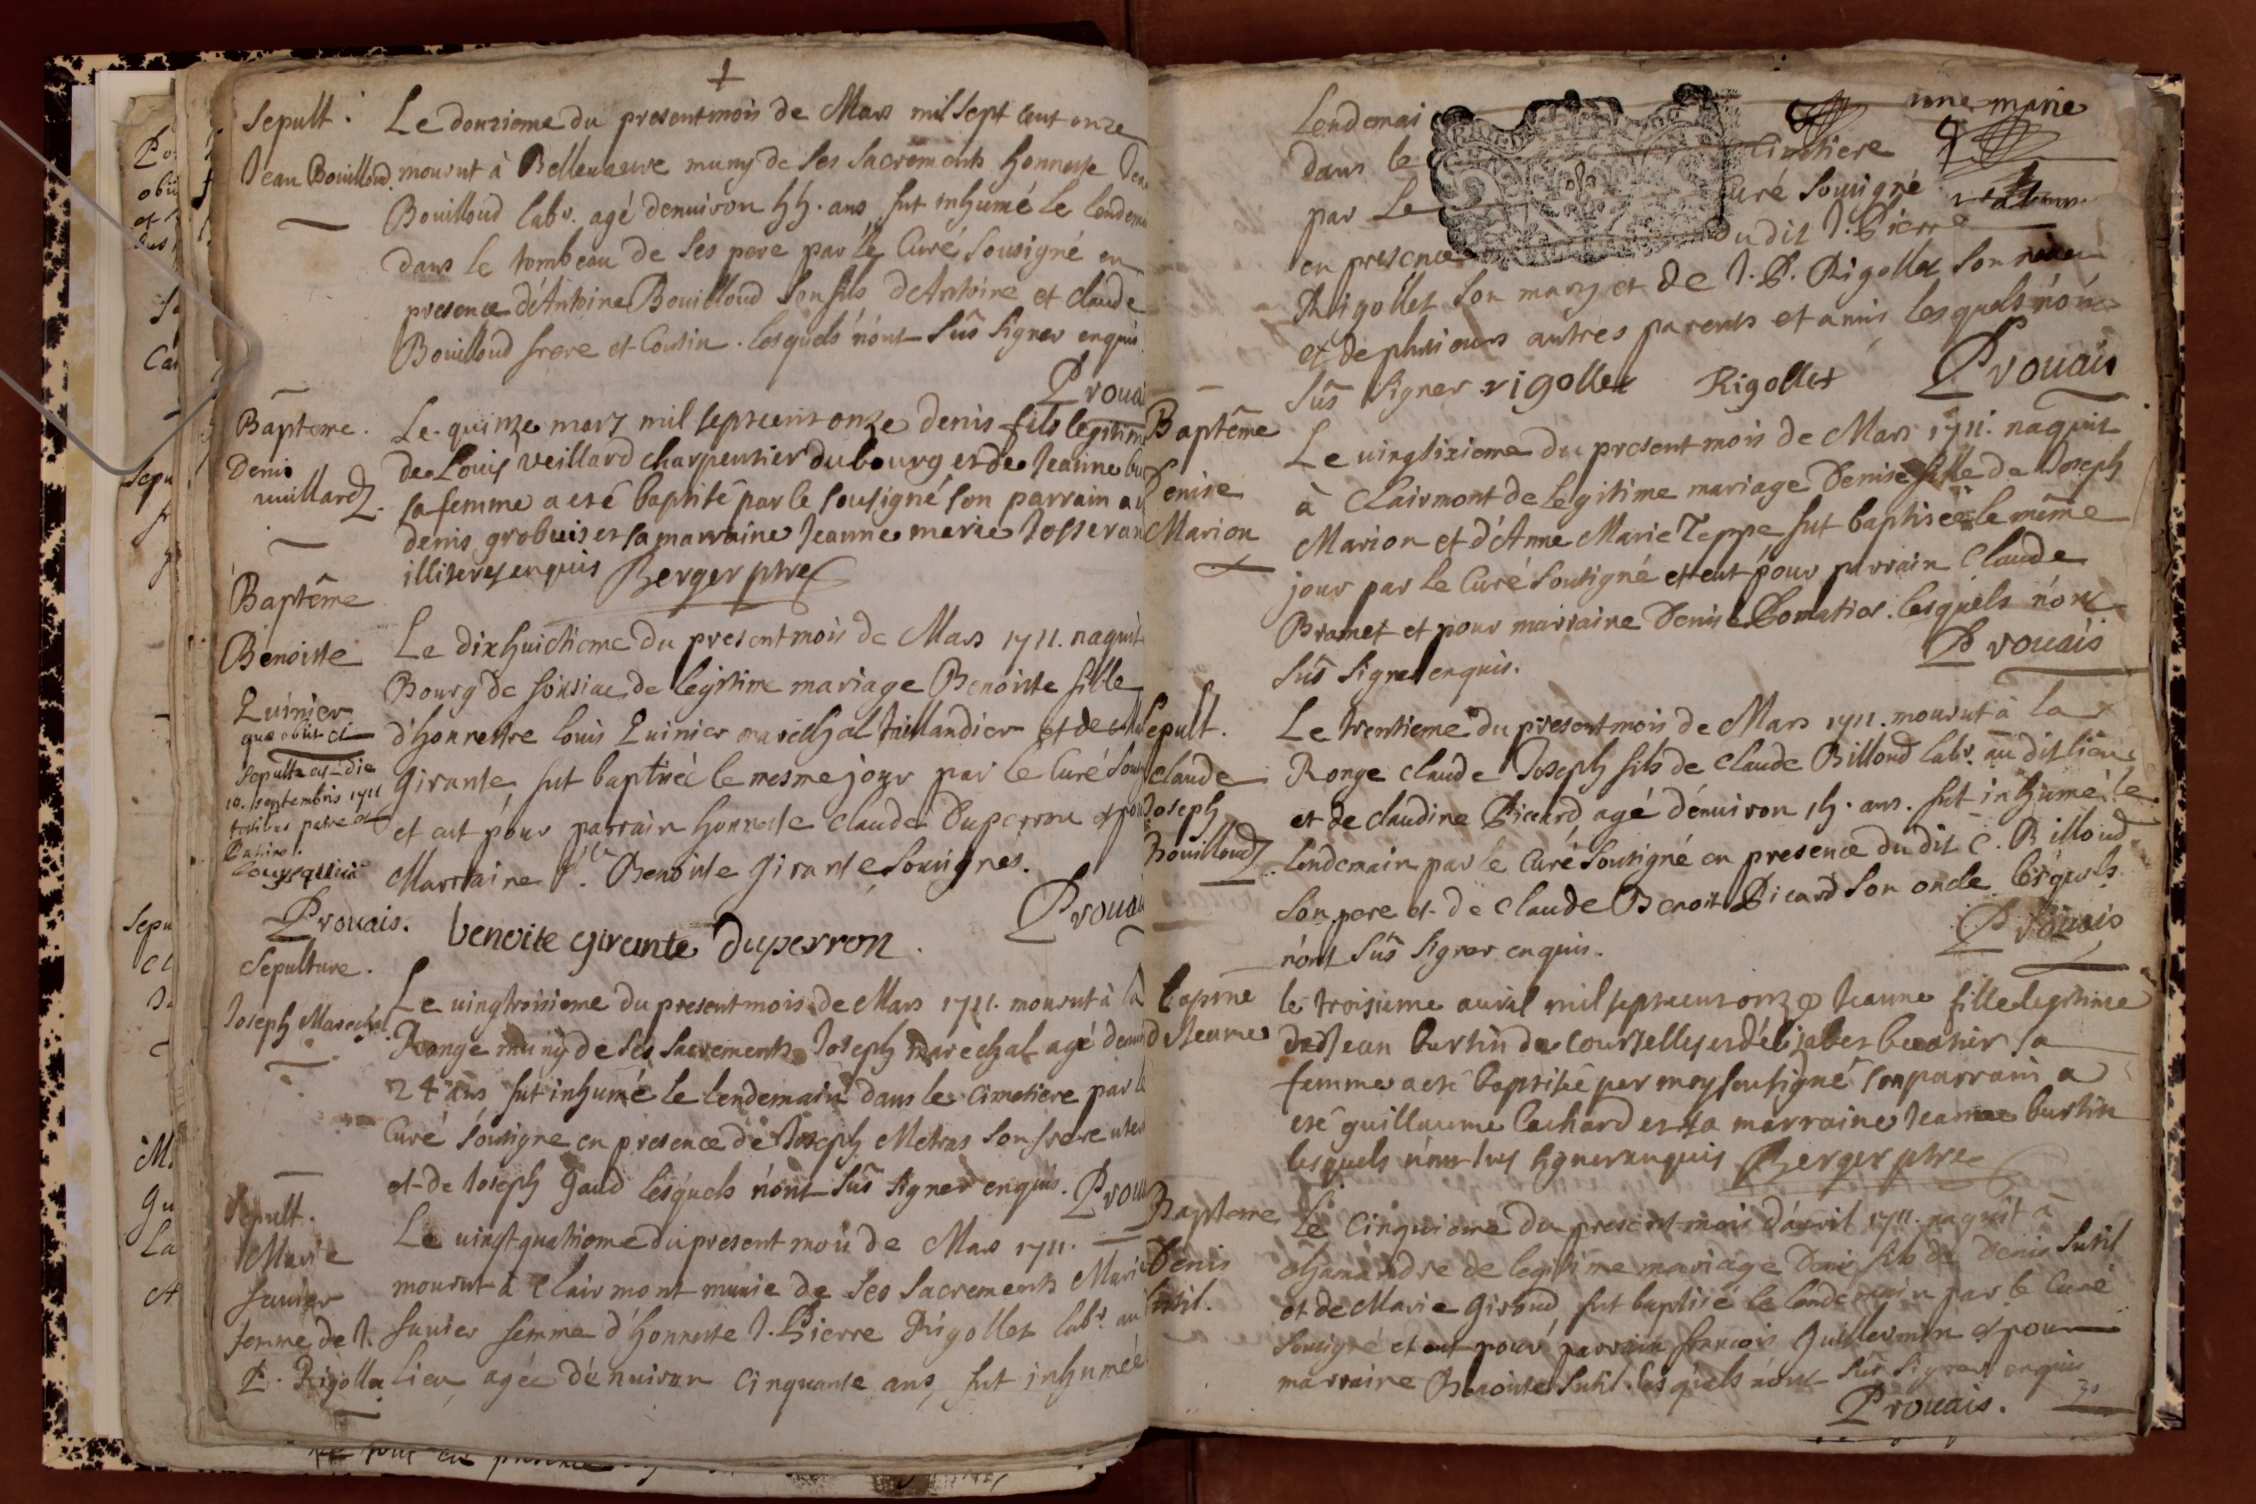 Sepult.
Jean Bouilloud.
Le douzieme du present mois de Mars mil sept cent onze
mourut à Belleuaeure muny de ses sacrements honneste
Bouilloud labr. agé denuiron 55. ans, fut inhumé le lendem
dans le tombeau de ses pere par le Curé sousigné en
presence d'Antoine Bouilloud son fils d'Antoine et claude
Bouilloud frere et Cousin. lesquels n'ont sûs signer enquis.
Prouai
Bapteme.
Denis
vuillard
Le quinze mars mil sept cent onze denis fils legitim
de Louis veillard charpentier du bourg et de Jeanne
sa femme a eté baptisé par le sousigné son parrain a
denis grobuis et sa marraine Jeanne marie Josseran
illiteres enquis Berger ptre
Baptême
Benoiste
Quinier
quæ obiit et
sepulta est die
10. septembris 1711
testibus patre et
Prouais.
Le dixhuictieme du present mois de Mars 1711. naquit
Bourg de de legitime mariage Benoiste fille
d'honneste louis Quinier marêchal taillandier et de
Girante, fut baptisée le mesme jour par le Curé sou
et eut pour parrain honneste claude Duperron et pou
Marraine Benoiste Girante sousignés.
Prouai
benoite girante Duperron.
Sepulture.
Joseph Marechal.
Le uingtroisieme du present mois de Mars 1711. mourut à la
Ronge muny de ses sacrements Joseph marechal agé denui
24 ans fut inhumé le lendemain dans le cimetiere par le
Curé sousigné en presence de Joseph Metras son frere uter
et de Joseph Gaud lesquels n'ont sûs signer enquis. Prou
Sepult.
Marie
femme de J.
P. Rigollet
Le uingt quatrieme du present mois de Mars 1711.
mourut à Clairmont munie de ses sacrements Marie
femme d'honneste J. Pierre Rigollet labr. au
lieu, agée d'enuiron cinquante ans, fut inhumée
Lendemai
anne marie
dans le cimetiere
par Le Curé sousigné
en presence dudit J. Pierre
Rigollet son mary et de J. P. Rigollet son neueu
et de plusieurs autres parents et amis, lesquels n'ont
sûs signer rigollet Rigollet Prouais
Baptême
Denise
Marion
Le uingtsixieme du present mois de Mars 1711. naquit
à Clairmont de legitime mariage Denise fille de Joseph
Marion et d'Anne Marie Teppe fut baptisée le même
jour par le Curé sousigné et eut pour parrain Claude
Bramet et pour marraine Denise lesquels n'ont
sûs signer enquis. Prouais
Sepult.
claude
Joseph
Bouilloud
Le trentieme du present mois de Mars 1711. mourut à la
Ronge claude Joseph fils de claude Billoud labr. au dit lieu
et de claudine Picard agé d'enuiron 15. ans. fut inhumé le
lendemain par le Curé sousigné en presence du dit C. Billoud
son pere et de claude Benoit Picard son oncle lesquels
n'ont sûs signer enquis. Prouais
bapme
d Jeanne
le troisieme auril mil sept cent onze Jeanne fille legitime
de Jean burtin de courselles et d'elizabet sa
femme a eté baptisée par moy sousigné son parrain a
eté guillaume lachard et sa marraine Jeanne burtin
lesquels n'ont sus signer enquis Berger ptre
Bapteme
Denis
Sutil.
Le cinquieme du present mois d'auril 1711. naquit à
de legitime mariage Denis fils de Denis Sutil
et de Marie Giroud, fut baptisé le lendemain par le Curé
sousigné et eut pour parrain francois Guillermin et pour
marraine Benoiste Sutil. lesquels n'ont sûs signer enquis
Prouais.